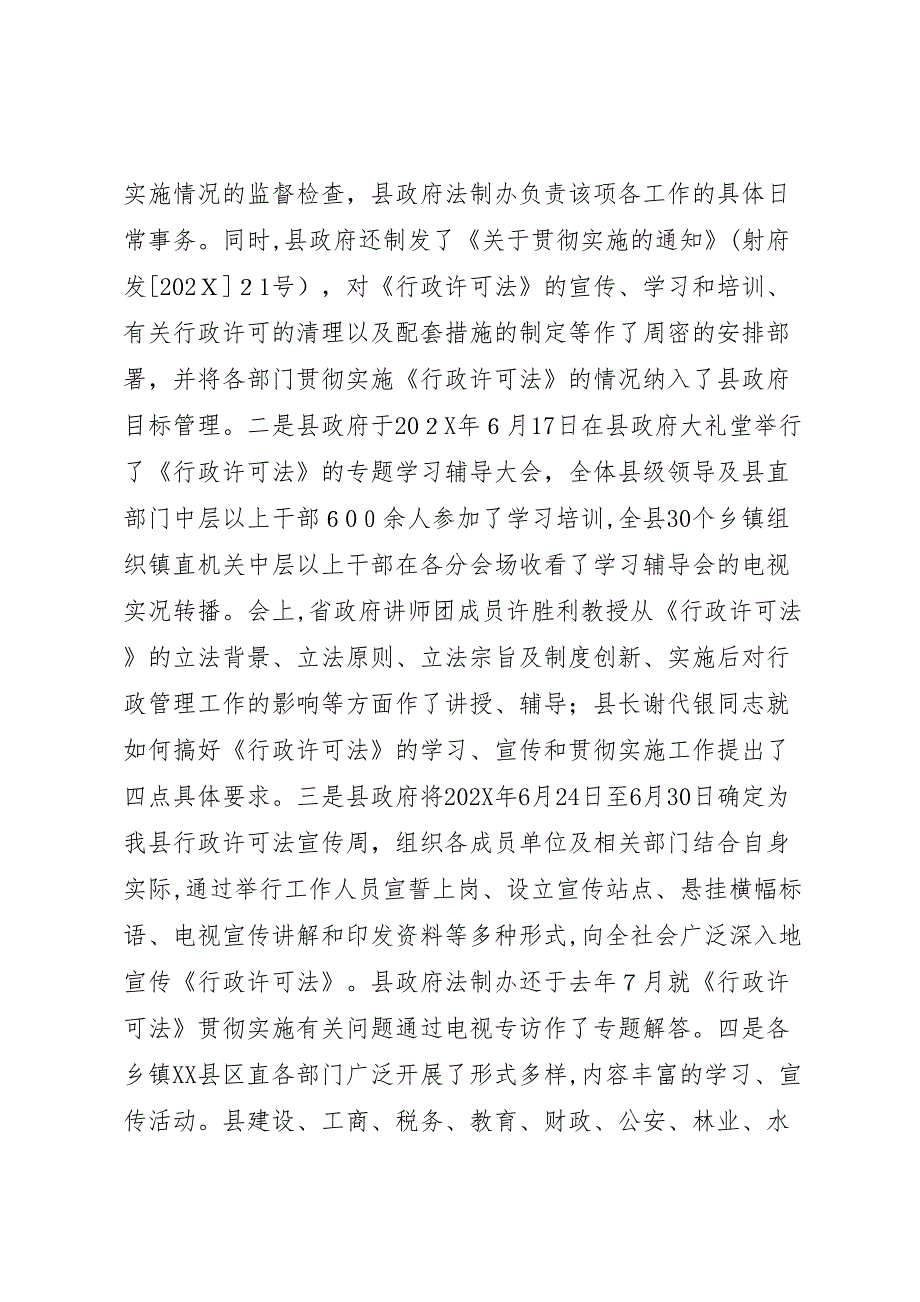 实施情况的监督检查，县政府法制办负责该项各工作的具体日
常事务。同时,县政府还制发了《关于贯彻实施的通知》(射府
发[202Ｘ]２1号），对《行政许可法》的宣传、学习和培训、
有关行政许可的清理以及配套措施的制定等作了周密的安排部
署，并将各部门贯彻实施《行政许可法》的情况纳入了县政府
目标管理。二是县政府于20２X年６月17日在县政府大礼堂举行
了《行政许可法》的专题学习辅导大会，全体县级领导及县直
部门中层以上干部６00余人参加了学习培训,全县30个乡镇组
织镇直机关中层以上干部在各分会场收看了学习辅导会的电视
实况转播。会上,省政府讲师团成员许胜利教授从《行政许可法
》的立法背景、立法原则、立法宗旨及制度创新、实施后对行
政管理工作的影响等方面作了讲授、辅导；县长谢代银同志就
如何搞好《行政许可法》的学习、宣传和贯彻实施工作提出了
四点具体要求。三是县政府将202X年6月24日至6月30日确定为
我县行政许可法宣传周，组织各成员单位及相关部门结合自身
实际,通过举行工作人员宣誓上岗、设立宣传站点、悬挂横幅标
语、电视宣传讲解和印发资料等多种形式,向全社会广泛深入地
宣传《行政许可法》。县政府法制办还于去年７月就《行政许
可法》贯彻实施有关问题通过电视专访作了专题解答。四是各
乡镇XX县区直各部门广泛开展了形式多样,内容丰富的学习、宣
传活动。县建设、工商、税务、教育、财政、公安、林业、水